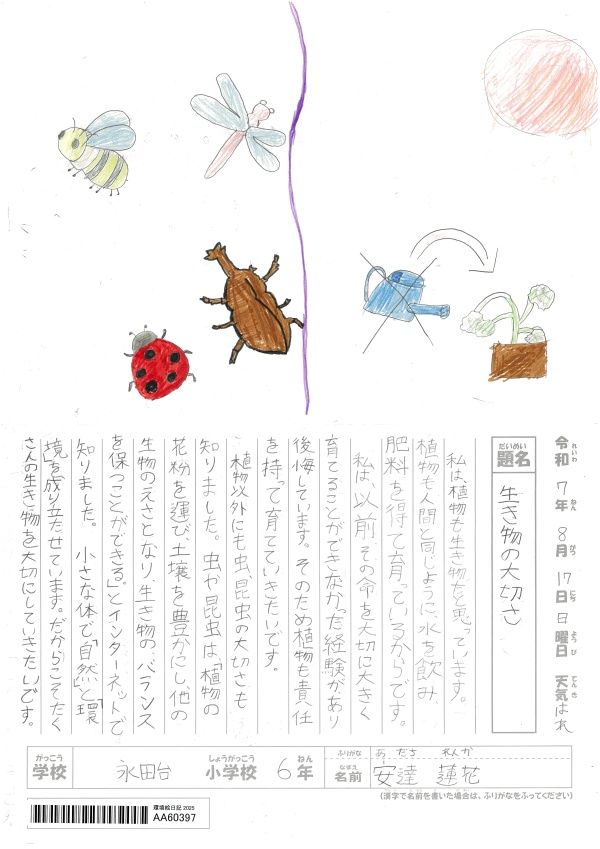 令和7年8月17日日曜日 天気はれ
れいわ ねん がつ にち ようび てんき
だいめい
題名 生き物の大切さ
私は、植物も生き物だと思っています。
植物も人間と同じように、水を飲み、
肥料を得て育っているからです。
私は、以前その命を大切に大きく
育てることができなかった経験があり
後悔しています。そのため植物も責任
を持って育てていきたいです。
植物以外にも虫、昆虫の大切さも
知りました。虫や昆虫は、「植物の
花粉を運び、土壌を豊かにし、他の
生物のえさとなり、生き物のバランス
を保つことができる」とインターネットで
知りました。小さな体で「自然」と「環
境」を成り立たせています。だからこそたく
さんの生き物を大切にしていきたいです。
がっこう しょうがっこう ねん
学校 永田台 小学校 6年
ふりがな あだち れんか
なまえ
名前 安達 蓮花
(漢字で名前を書いた場合は、ふりがなをふってください)
環境絵日記 2025
AA60397